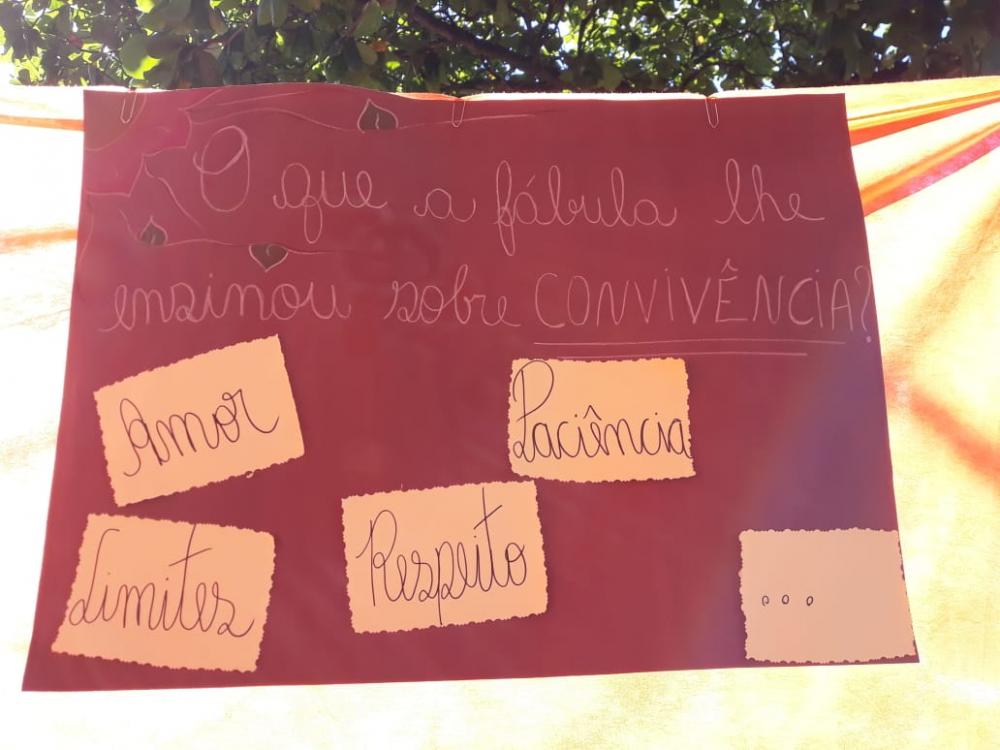 O que a fábula lhe
ensinou sobre CONVIVÊNCIA?
Amor
Paciência
Limites
Respeito
...